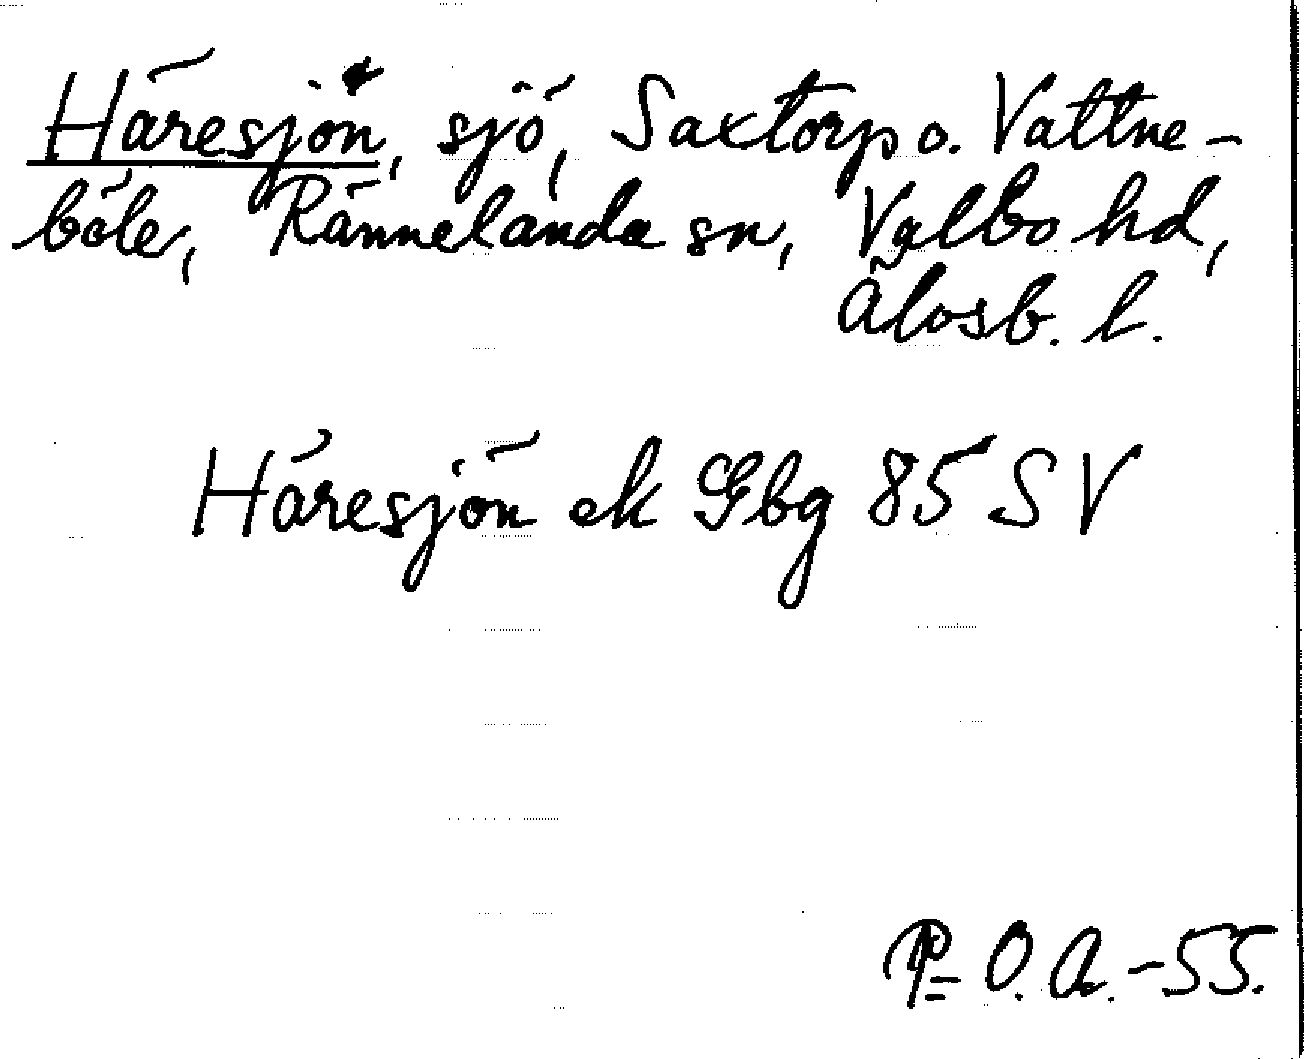 Häresjön, sjö, Saxtorp o. Vattne-
böle, Rännelanda sn, Valbo hd,
Älvsb. l.
Häresjön ek Gbg 85 SV
P= O. A. -55.